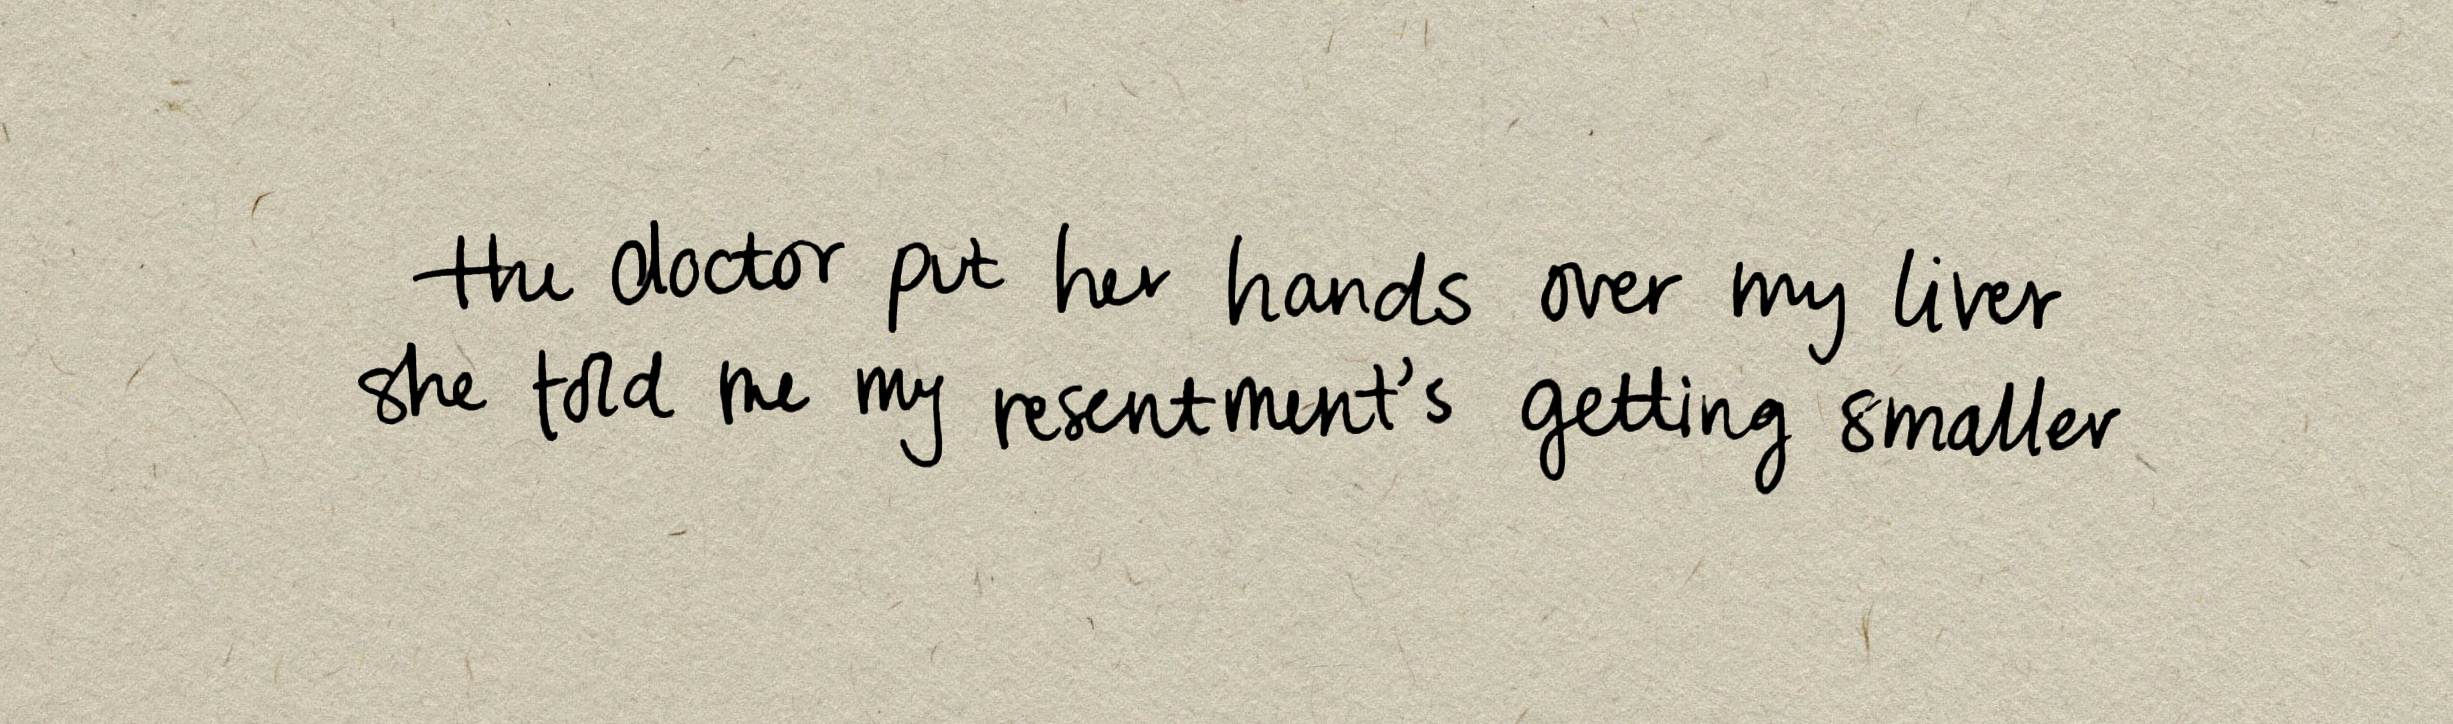 the doctor put her hands over my liver
she told me my resentment's getting smaller